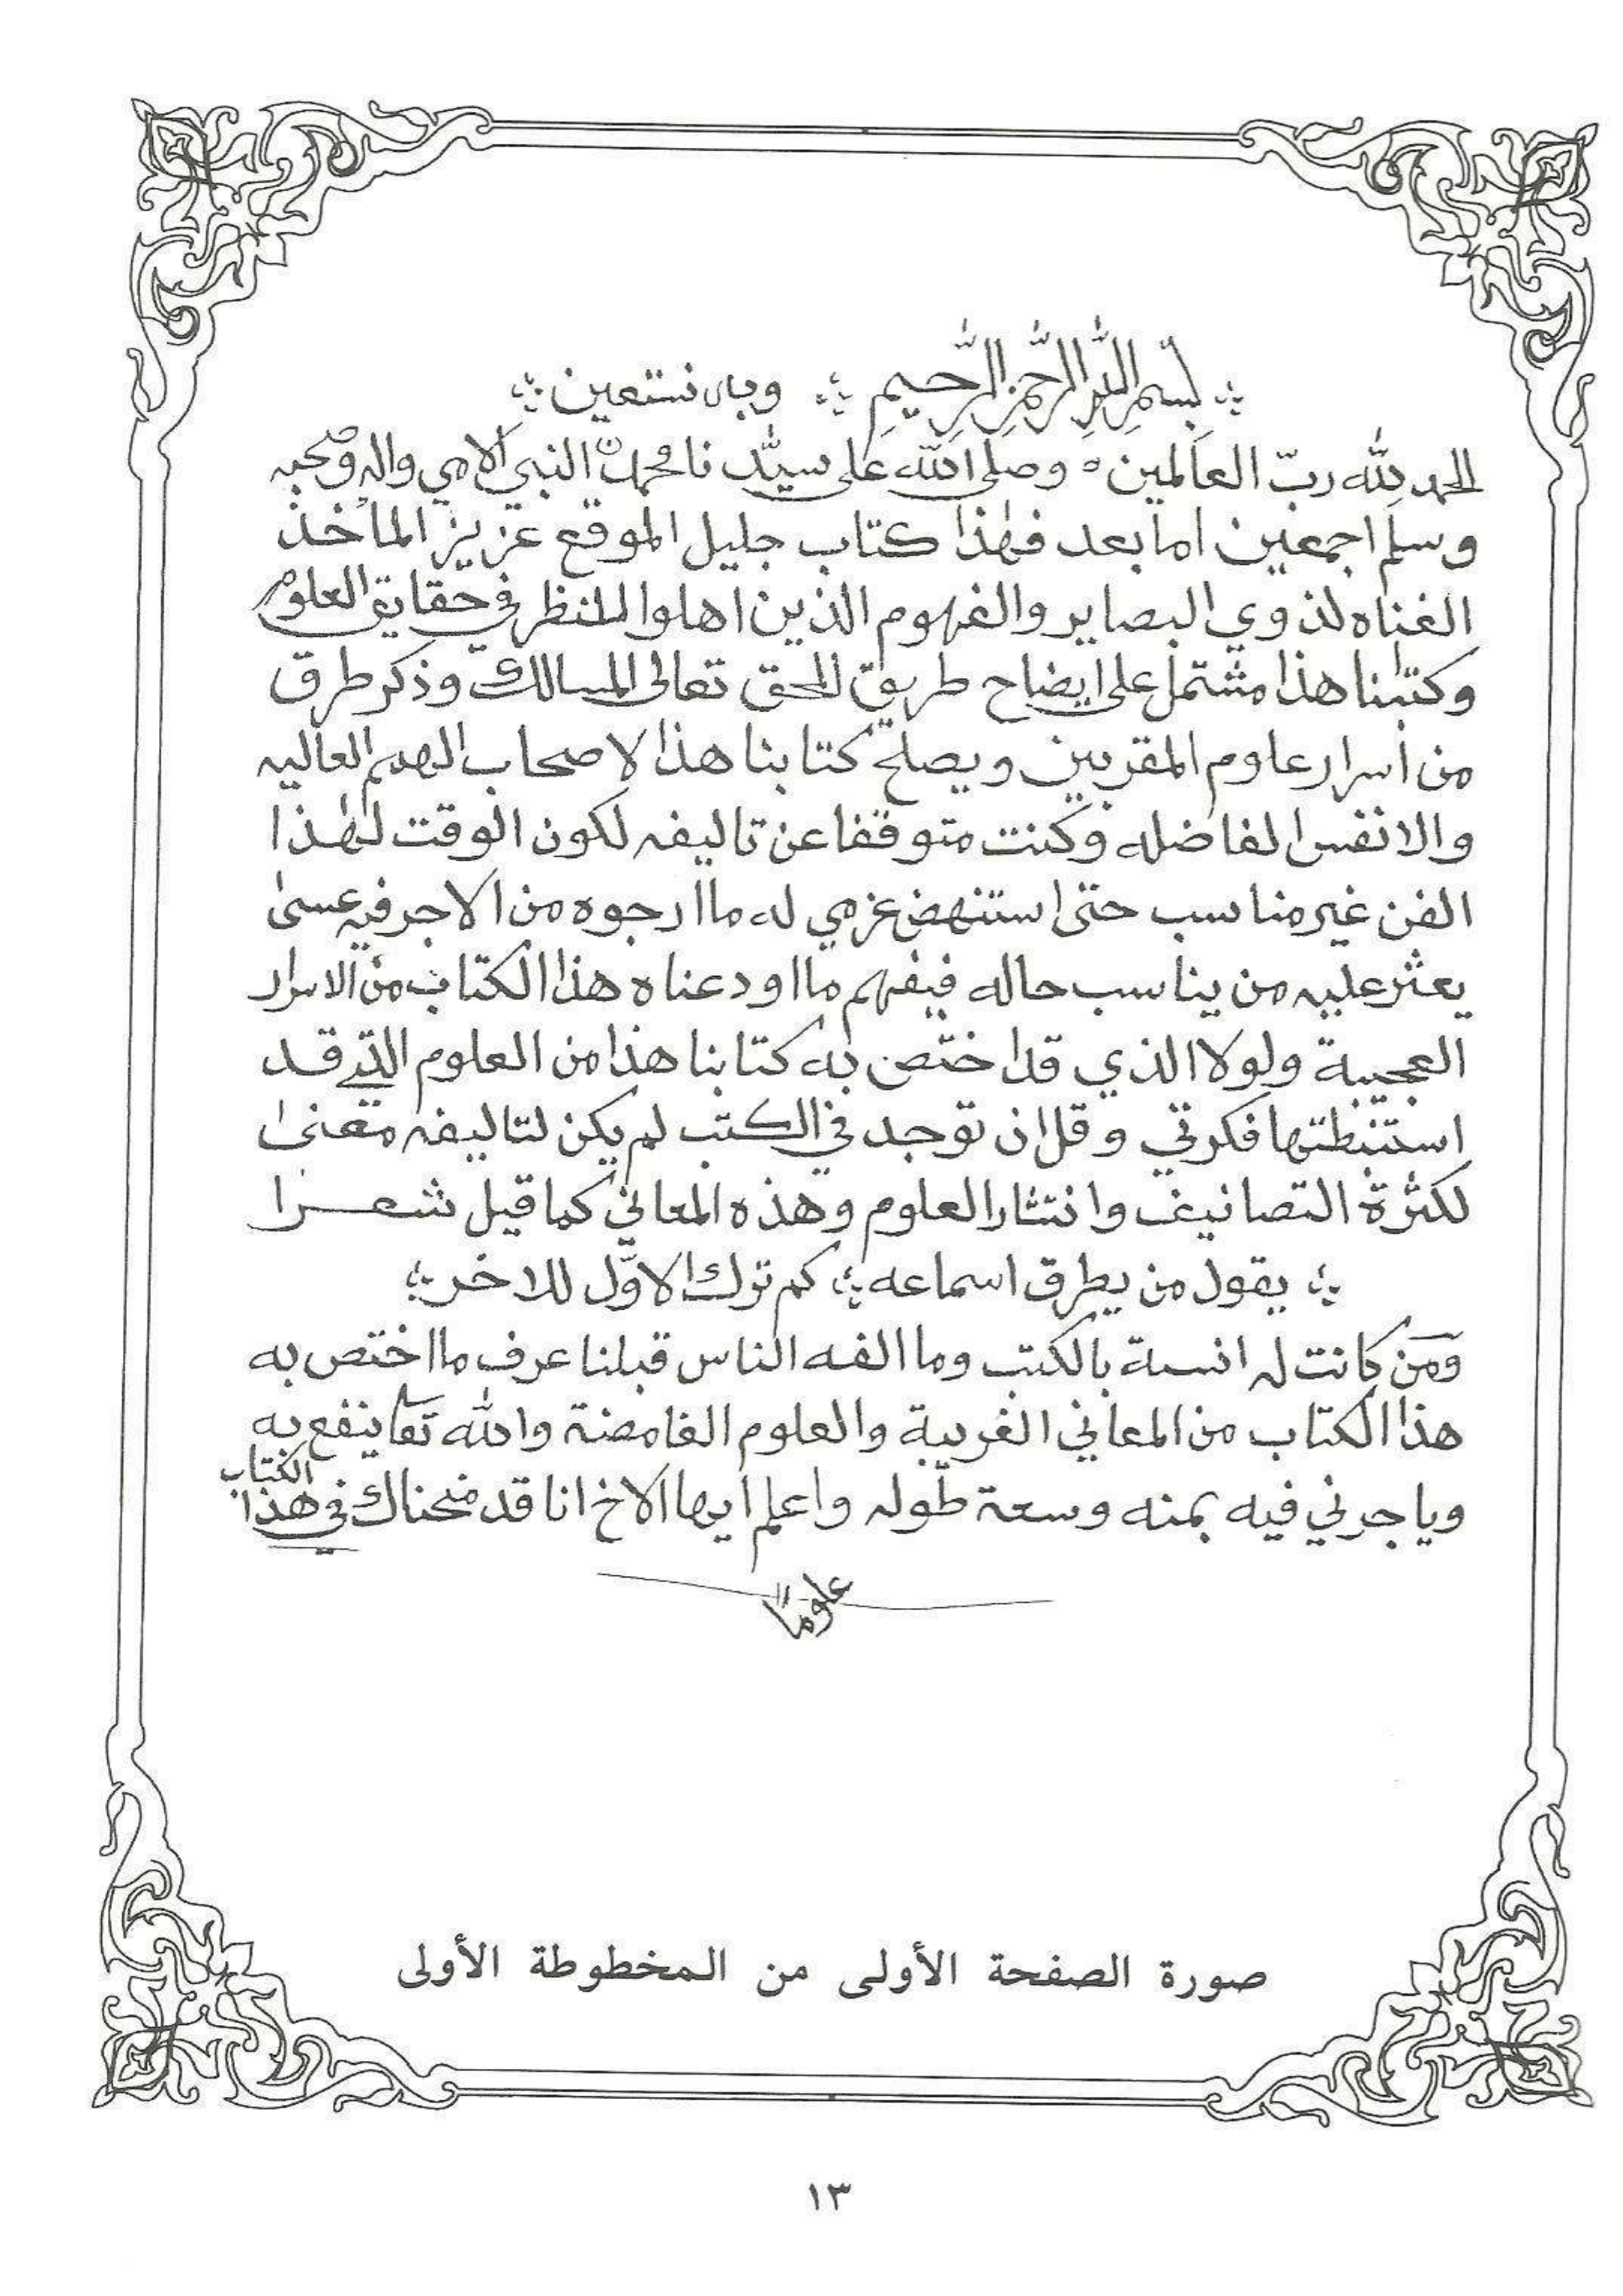 بسم الله الرحمن الرحيم وبه نستعين
الحمد لله ربّ العالمين وصلى الله على سيّدنا محمد النبي الامي واله وصحبه
وسلم اجمعين اما بعد فهذا كتاب جليل الموقع عزيز المأخذ
الفناه لذوي البصاير والفهوم الذين اهلوا للنظر في حقايق العلوم
وكتبنا هذا مشتمل على ايضاح طريق الحق تعالى المسالك وذكر طرق
من أسرار علوم المقربين ويصلح كتابنا هذا لاصحاب الهمم العاليه
والانفس الفاضله وكنت متوقفا عن تاليفه لكون الوقت لهذا
الفن غير مناسب حتى استنهض عزمي له ما ارجوه من الاجر فيه عسى
يعثر عليه من يناسب حاله فيفهم ما اودعناه هذا الكتاب من الاسرار
العجيبة ولولا الذي قد اختص به كتابنا هذا من العلوم التي قد
استنبطتها فكرتي وقل ان توجد في الكتب لم يكن لتاليفه معنى
لكثرة التصانيف وانتشار العلوم وهذه المعاني كما قيل شعرا
يقول من يطرق اسماعه كم ترك الاوّل للاخر
ومن كانت له انسة بالكتب وما الفه الناس قبلنا عرف ما اختص به
هذا الكتاب من المعاني الغريبة والعلوم الغامضة والله تعا ينفع به
وياجرني فيه بمنه وسعة طوله واعلم ايها الاخ انا قد منحناك في هذا الكتاب
علومًا
صورة الصفحة الأولى من المخطوطة الأولى
١٣